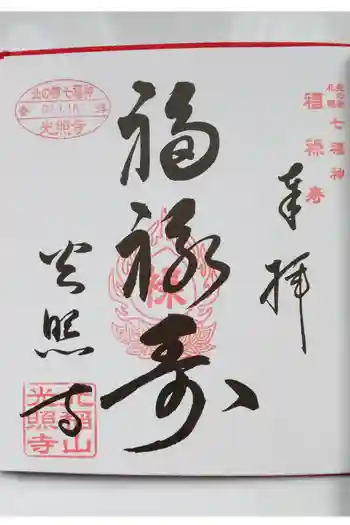 北の都七福神
札幌
七福神
福禄寿
奉拝
福禄寿
禄
光照寺
北の都七福神
光照寺
光照寺